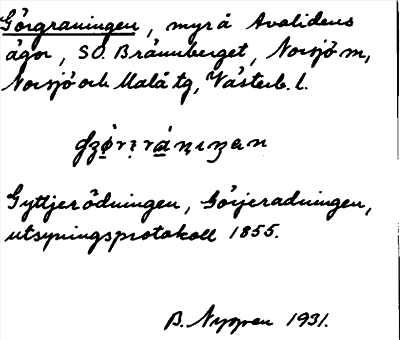 Görgraningen, myr å Avalidens
ägor, SO. Brännberget, Norsjö m,
Norsjö och Malå tg, Västerb. l.
Gyttjerödningen, Görjeradningen,
utsyningsprotokoll 1855.
B. Nygren 1931.